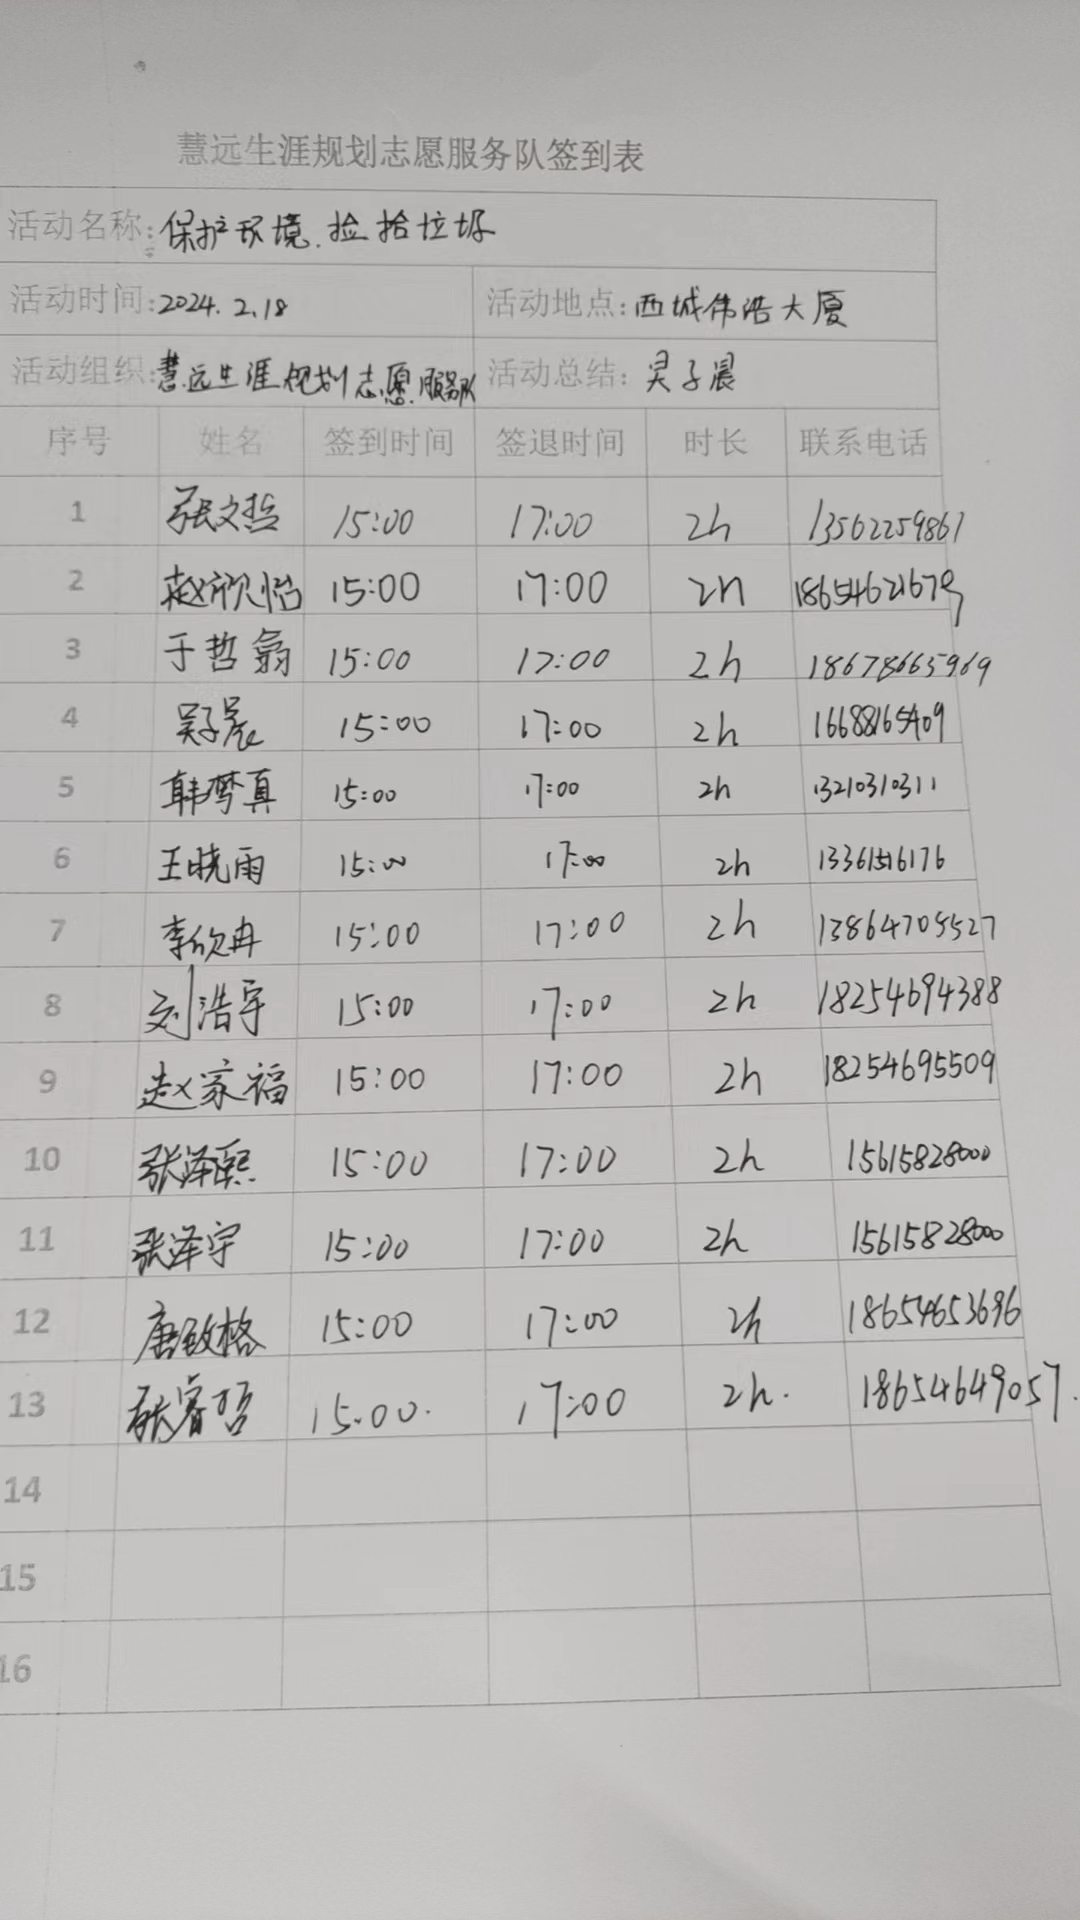 慧远生涯规划志愿服务队签到表
活动名称:保护环境.捡拾垃圾
活动时间:2024.2.18 活动地点:西城伟浩大厦
活动组织:慧远生涯规划志愿服务队 活动总结:吴子晨
序号 姓名 签到时间 签退时间 时长 联系电话
1 张文哲 15:00 17:00 2h 13562259861
2 赵欣怡 15:00 17:00 2h 18654621679
3 于哲翕 15:00 17:00 2h 18678665969
4 吴子晨 15:00 17:00 2h 16688165409
5 韩梦真 15:00 17:00 2h 13210310311
6 王晓雨 15:00 17:00 2h 13361516176
7 李欣冉 15:00 17:00 2h 13864705527
8 刘浩宇 15:00 17:00 2h 18254694388
9 赵家福 15:00 17:00 2h 18254695509
10 张泽熙 15:00 17:00 2h 15615828000
11 张泽宇 15:00 17:00 2h 15615828000
12 唐致格 15:00 17:00 2h 18654653696
13 张睿哲 15:00. 17:00 2h. 18654649057.
14
15
16